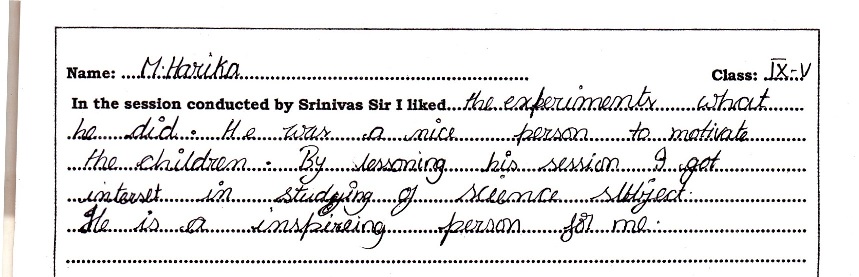 Name: M. Harika Class: IX-V
In the session conducted by Srinivas Sir I liked the experiments what
he did. He was a nice person to motivate
the children. By lessoning his session I got
interset in studying of science subject.
He is a inspireing person for me.